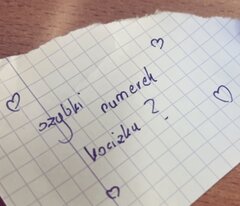 szybki numerek
kocizku?